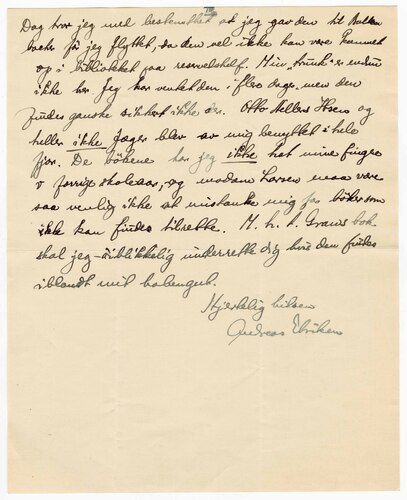 Dog tror jeg med bestemthet at jeg gav den til
før jeg flyttet, da den vel ikke kan være kommet
op i biblioteket paa reservehylf. Min "trunk" er endnu
ikke her. Jeg har ventet den i flere dager, men den
findes ganske sikkert ikke der. Otto og
heller ikke Jæger blev av mig benyttet i hele
fjor. De bökene har jeg ikke hat mine fingre
i forrige skoleaar, og madam Larsen maa være
saa venlig ikke at mistanke mig for böker som
ikke kan findes tilrette. M. h. t. Grams bok
skal jeg öiblikkelig underrette dig hvis den findes
iblandt mit habengut.
Hjertelig hilsen
Andreas